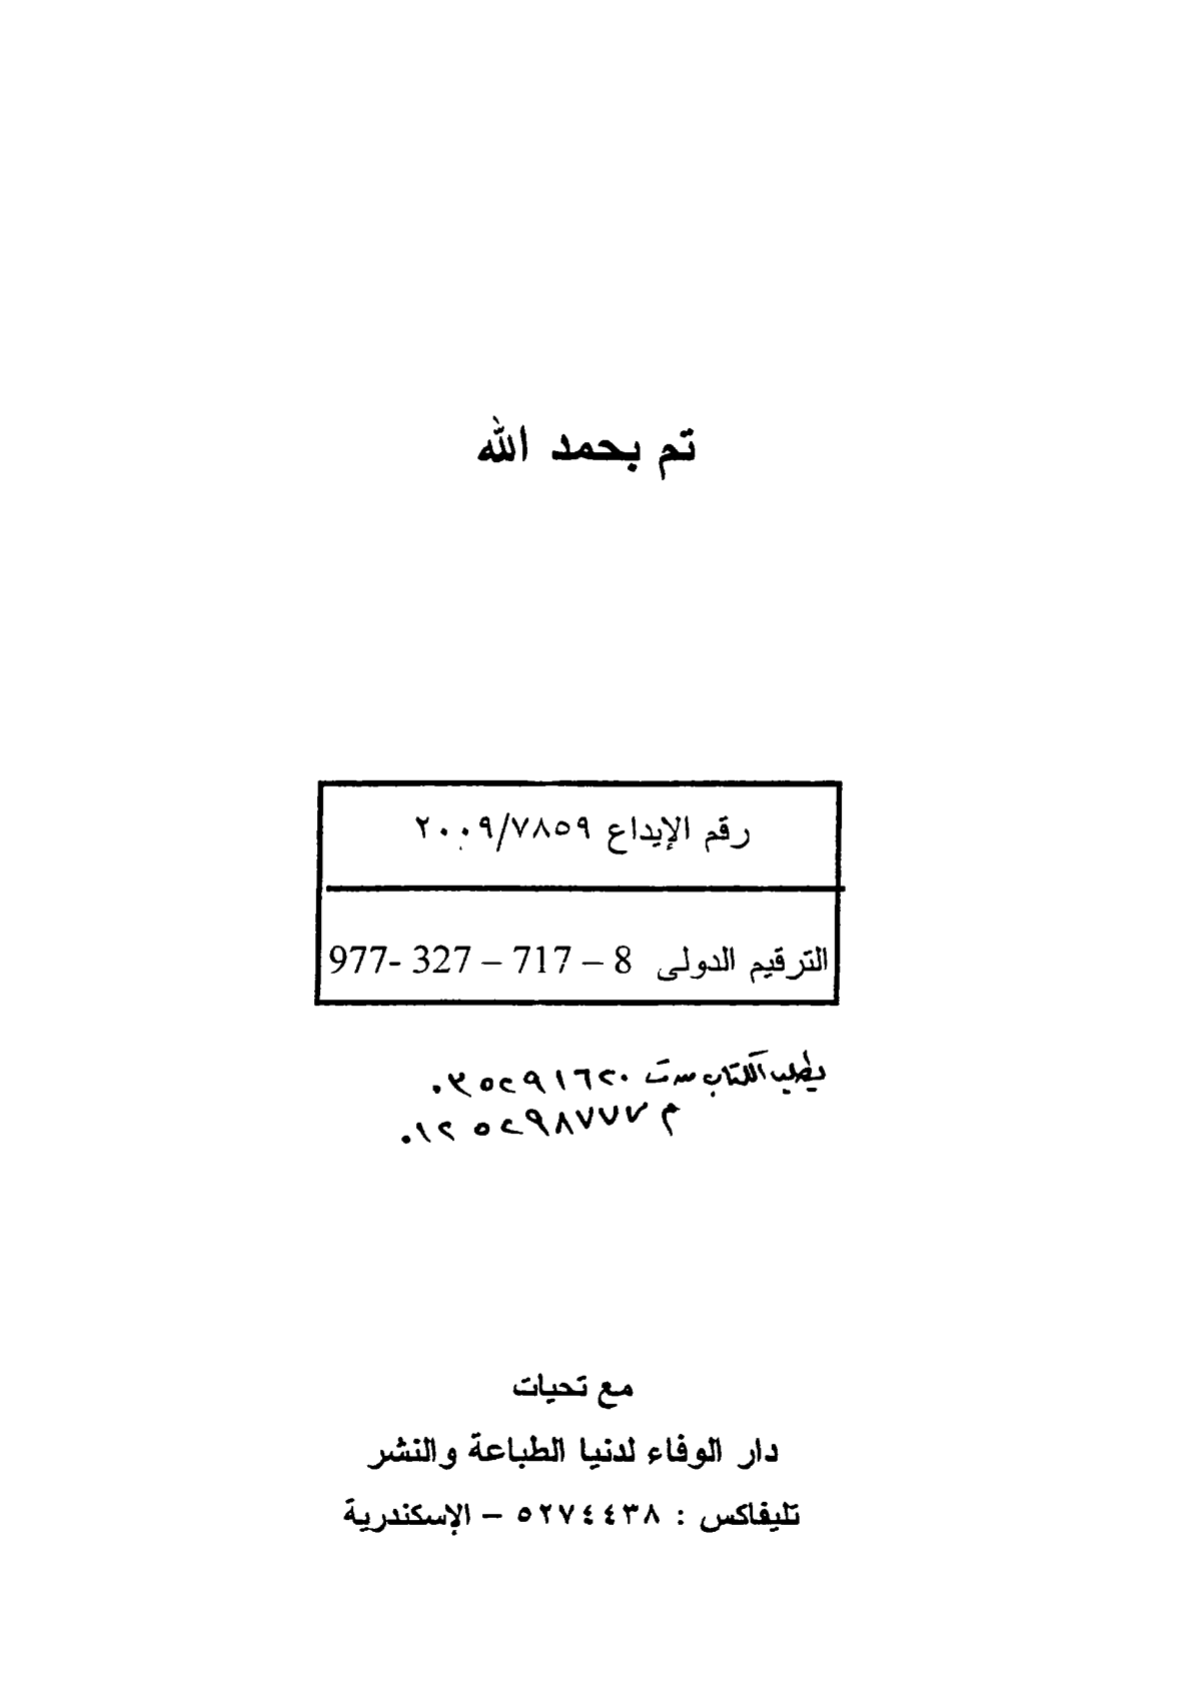 تم بحمد الله
رقم الإيداع ٢٠٠٩/٧٨٥٩
الترقيم الدولى 8 – 717 – 327 -977
يطلب الكتاب من ت ٠٣٥٢٩١٦٢٠
م ٠١٢٥٢٩٨٧٧٧
مع تحيات
دار الوفاء لدنيا الطباعة والنشر
تليفاكس : ٥٢٧٤٤٣٨ – الإسكندرية